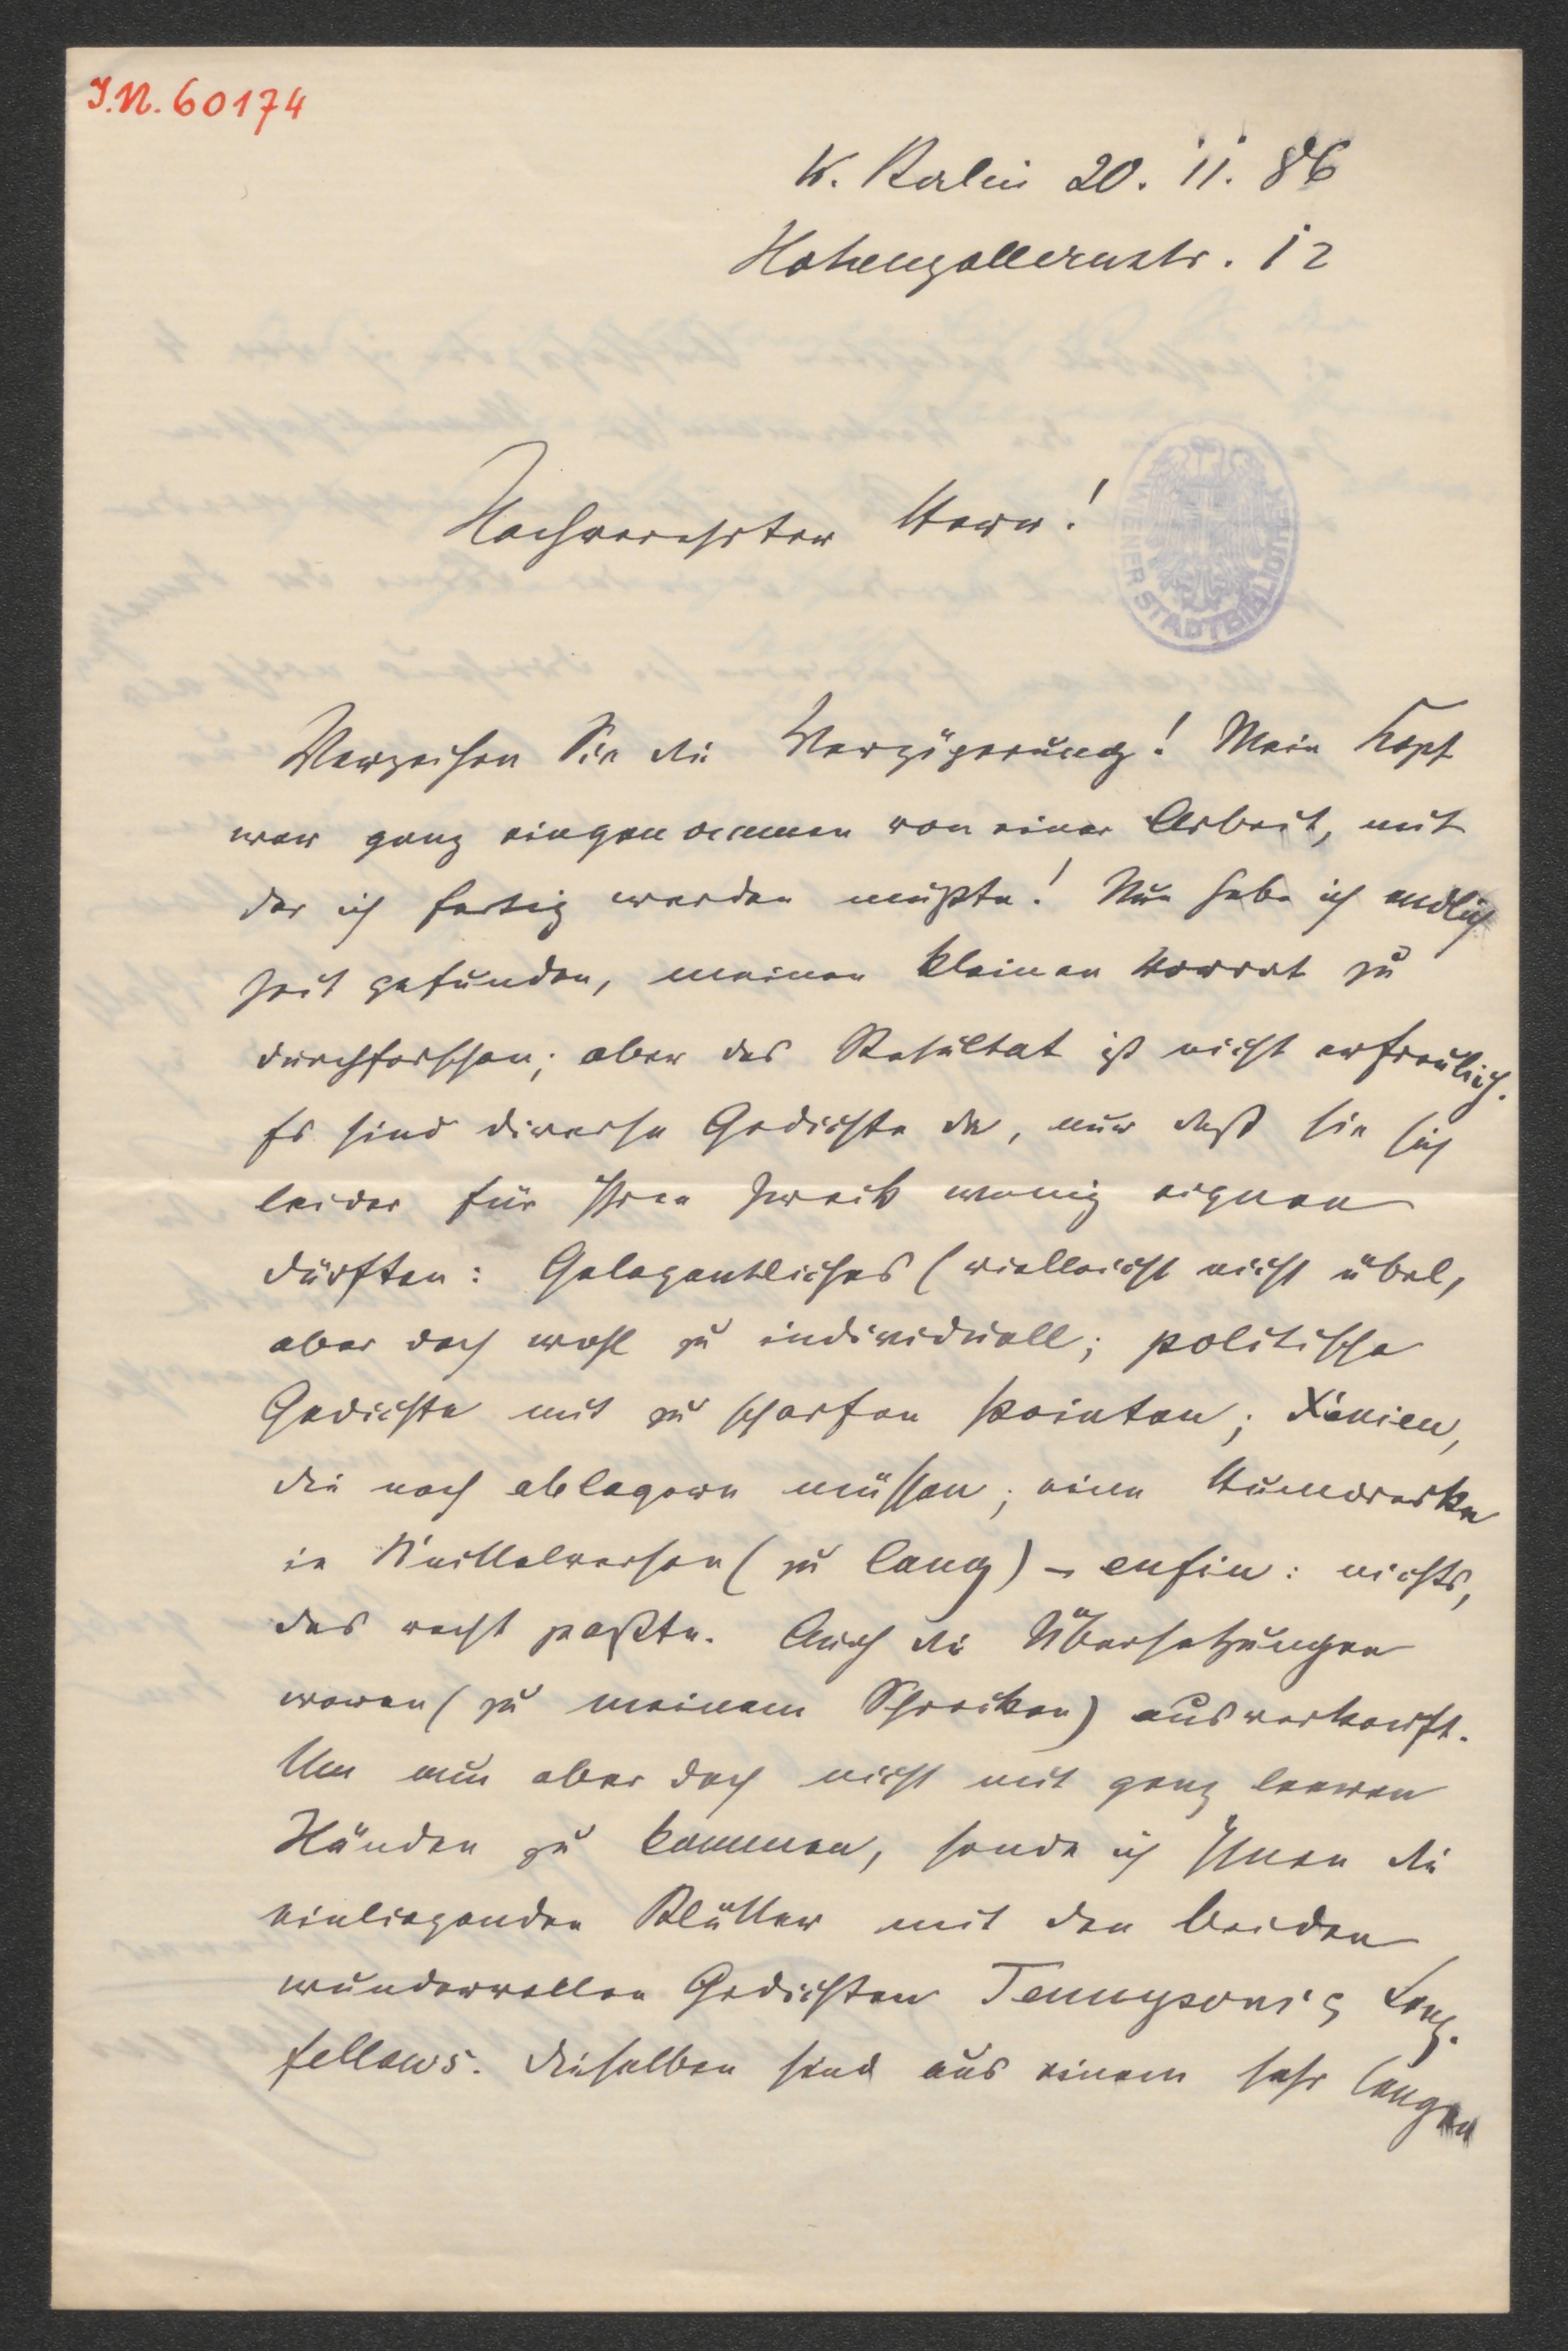 J.N. 60174
W. Berlin 20. 11. 86
Hohenzollernstr. 12
Hochverehrter Herr!
WIENER STADTBIBLIOTHEK
Verzeihen Sie die Verzögerung! Mein Kopf
war ganz eingenommen von einer Arbeit, mit
der ich fertig werden mußte! Nun habe ich endlich
Zeit gefunden, meinen kleinen Vorrat zu
durchforschen; aber das Resultat ist nicht erfreulich.
Es sind diverse Gedichte da, nur daß sie sich
leider für Ihren Zweck wenig eignen
dürften: Gelegentliches (vielleicht nicht übel,
aber doch wohl zu individuell; politische
Gedichte mit zu scharfen Pointen; Xenien,
die noch ablagern müssen; eine Humoreske
in Knittelversen (zu lang) – enfin: nichts,
das recht paßte. Auch die Übersetzungen
waren (zu meinem Schrecken) ausverkauft.
Um nun aber doch nicht mit ganz leeren
Händen zu kommen, sende ich Ihnen die
einliegenden Blätter mit den beiden
wundervollen Gedichten Tennysons's Long-
fellows. Dieselben sind aus einem sehr langen